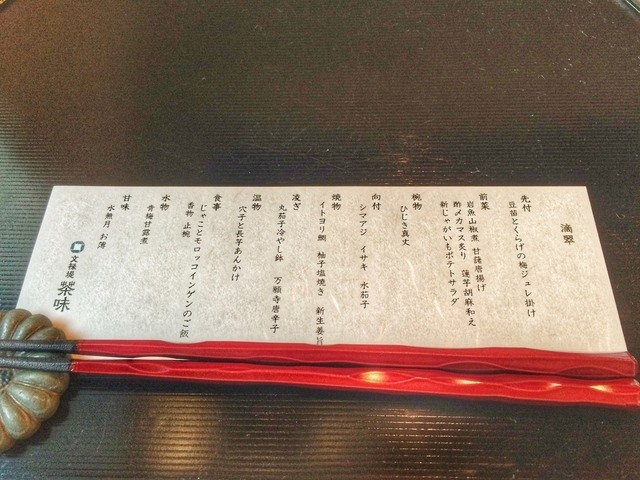 滴翠
先付
豆苗とくらげの梅ジュレ掛け
前菜
岩魚山椒煮 甘藷唐揚げ
酢〆カマス炙り 蓮芋胡麻和え
新じゃがいもポテトサラダ
椀物
ひじき真丈
向付
シマアジ イサキ 水茄子
焼物
イトヨリ鯛 柚子塩焼き 新生姜旨
凌ぎ
丸茄子冷やし鉢 万願寺唐辛子
温物
穴子と長芋あんかけ
食事
じゃことモロッコインゲンのご飯
香物 止椀
水物
青梅甘露煮
甘味
水無月 お薄
文祿堤
茶味